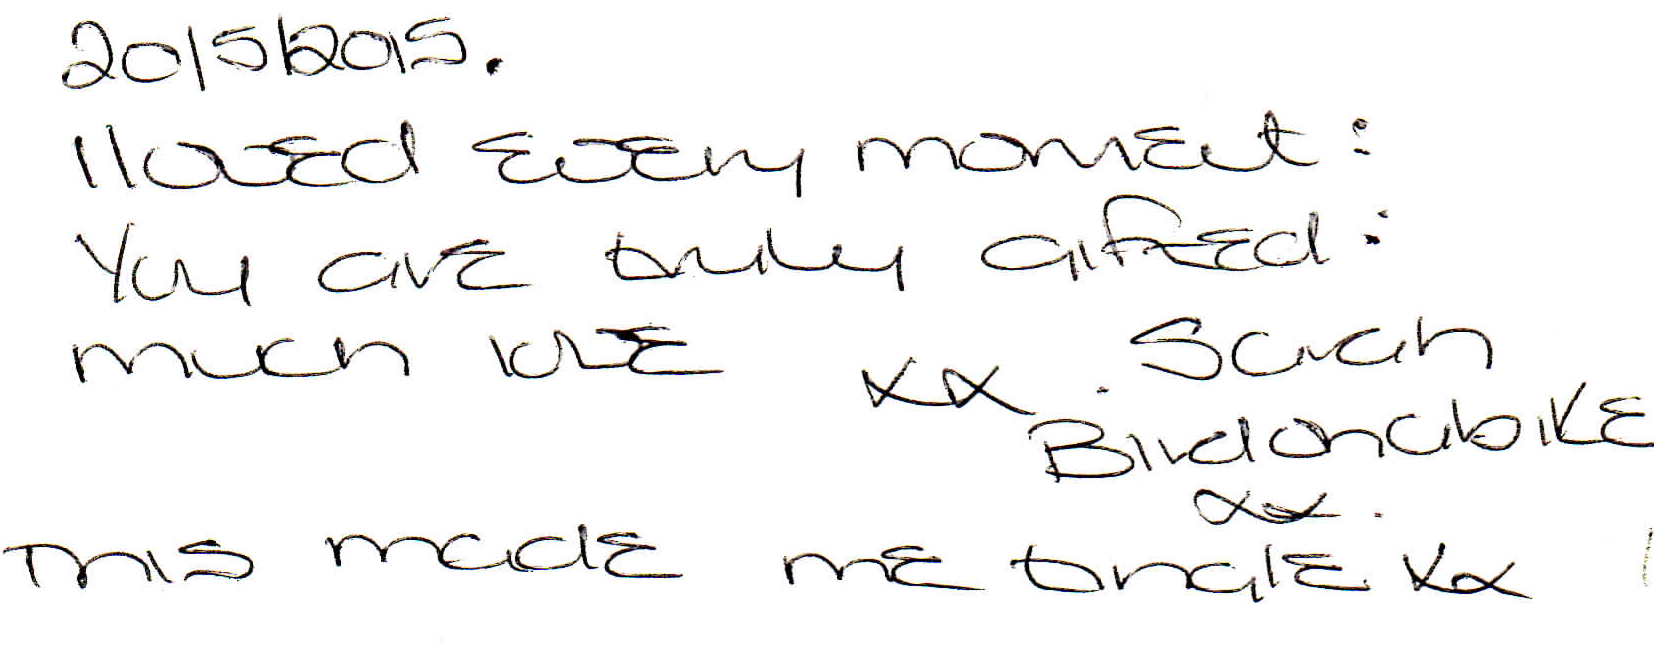 20/5/2015.
I loved every moment :
You are truly gifted :
much love xx. Sarah
Birdonabike
xx.
This made me tingle xx